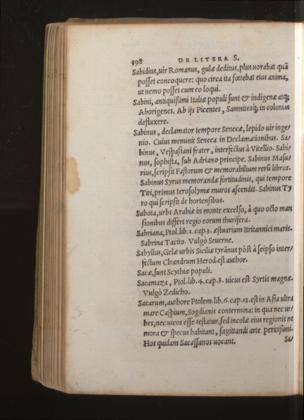 498 DE LITERA S.
Sabidius, uir Romanus, gulæ deditus, plus uorabat quã
posset concoquere: quo circa ita fœtebat eius anima,
ut nemo posset cum eo loqui.
Sabini, antiquißimi Italiæ populi sunt & indigenæ atq;
Aborigenes. Ab ijs Picentes, Samnitesq; in colonias
defluxere.
Sabinus, declamator tempore Senecæ, lepido uir inge⸗
nio. Cuius meminit Seneca in Declamationibus. Sa⸗
binus, Vespasiani frater, interfectus à Vitellio. Sabi⸗
nus, sophista, sub Adriano principe. Sabinus Masu⸗
rius, scripsit Fastorum & memorabilium rerũ libros.
Sabinus Syrus memorandæ fortitudinis, qui tempore
Titi, primus Ierosolymæ muros ascendit. Sabinus Ty⸗
ro qui scripsit de hortensibus.
Sabota, urbs Arabiæ in monte excelso, à quo octo man
sionibus differt regio eorum thurifera.
Sabriana, Ptol. lib. 1. cap. 3. æstuarium Britannici maris.
Sabrina Tacito. Vulgò Seuerne.
Sabyllus, Gelæ urbis Siciliæ tyrãnus pòst à seipso inter⸗
fectum Cleandrum Herod. est author.
Sacæ, sunt Scythiæ populi.
Sacamaza, Ptol. lib. 4. cap. 3. uicus est Syrtis magnæ.
Vulgò Zedicho.
Sacarum, authore Ptolem lib. 6. cap. 13. est in Asia ultra
mare Caspium, Sogdianis contermina: in qua nec ur⸗
bes, nec uicos esse testatur, sed incolæ eius regionis ne
mora & specus habitant, sagittandi arte peritißimi.
Hos quidam Sacassanos uocant.
Sa⸗